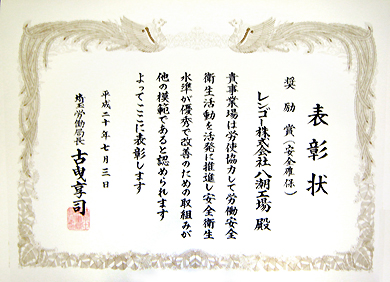 表彰状
奨励賞(安全確保)
レンゴー株式会社八潮工場 殿
貴事業場は労使協力して労働安全
衛生活動を活発に推進し安全衛生
水準が優秀で改善のための取組みが
他の模範であると認められます
よってここに表彰します
平成二十年七月三日
埼玉労働局長 古曳享司